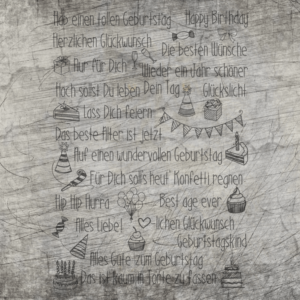 Hab einen tollen Geburtstag Happy Birthday
Herzlichen Glückwunsch
Die besten Wünsche
Nur für Dich
Wieder ein Jahr schöner
Hoch sollst Du leben Dein Tag Glückslicht
Lass Dich feiern
Das beste Alter ist jetzt
Auf einen wundervollen Geburtstag
Für Dich soll's heut' Konfetti regnen
Hip Hip Hurra Best age ever
Alles liebe! lichen Glückwunsch
Geburtstagskind
Alles Gute zum Geburtstag
Das ist kaum in Torte zu fassen